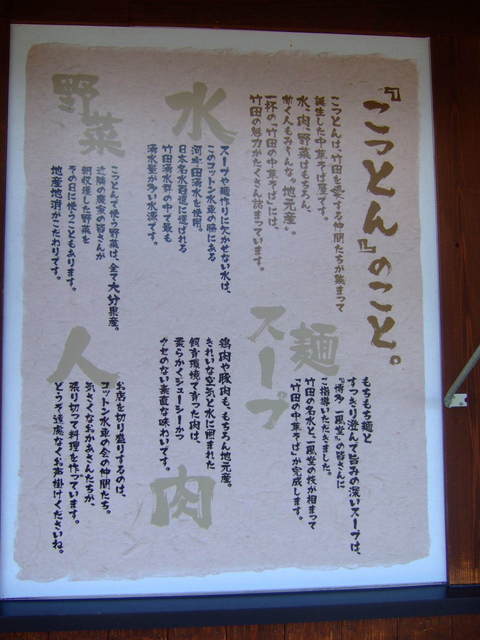 『こっとん』のこと。
こっとんは、竹田を愛する仲間たちが集まって
誕生した中華そば屋です。
水、肉、野菜はもちろん、
働く人もみ～んな〝地元産〟。
一杯の「竹田の中華そば」には、
竹田の魅力がたくさん詰まっています。
水
スープや麺作りに欠かせない水は、
このコットン水車の脇にある
河宇田湧水を使用。
日本名水百選に選ばれる
竹田湧水群の中で最も
湧水量が多い水源です。
野菜
こっとんで使う野菜は、全て大分県産。
近隣の農家の皆さんが
朝収穫した野菜を
その日に使うこともあります。
地産地消がこだわりです。
麺
スープ
もちもち麺と
すっきり澄んで旨みの深いスープは、
〝博多一風堂〟の皆さんに
ご指導いただきました。
竹田の名水と、一風堂の技が相まって
「竹田の中華そば」が完成します。
肉
鶏肉や豚肉も、もちろん地元産。
きれいな空気と水に囲まれた
飼育環境で育った肉は、
柔らかくジューシーかつ
クセのない素直な味わいです。
人
お店を切り盛りするのは、
コットン水車の会の仲間たち。
気さくなおかあさんたちが、
張り切って料理を作っています。
どうぞ遠慮なくお声掛けくださいね。